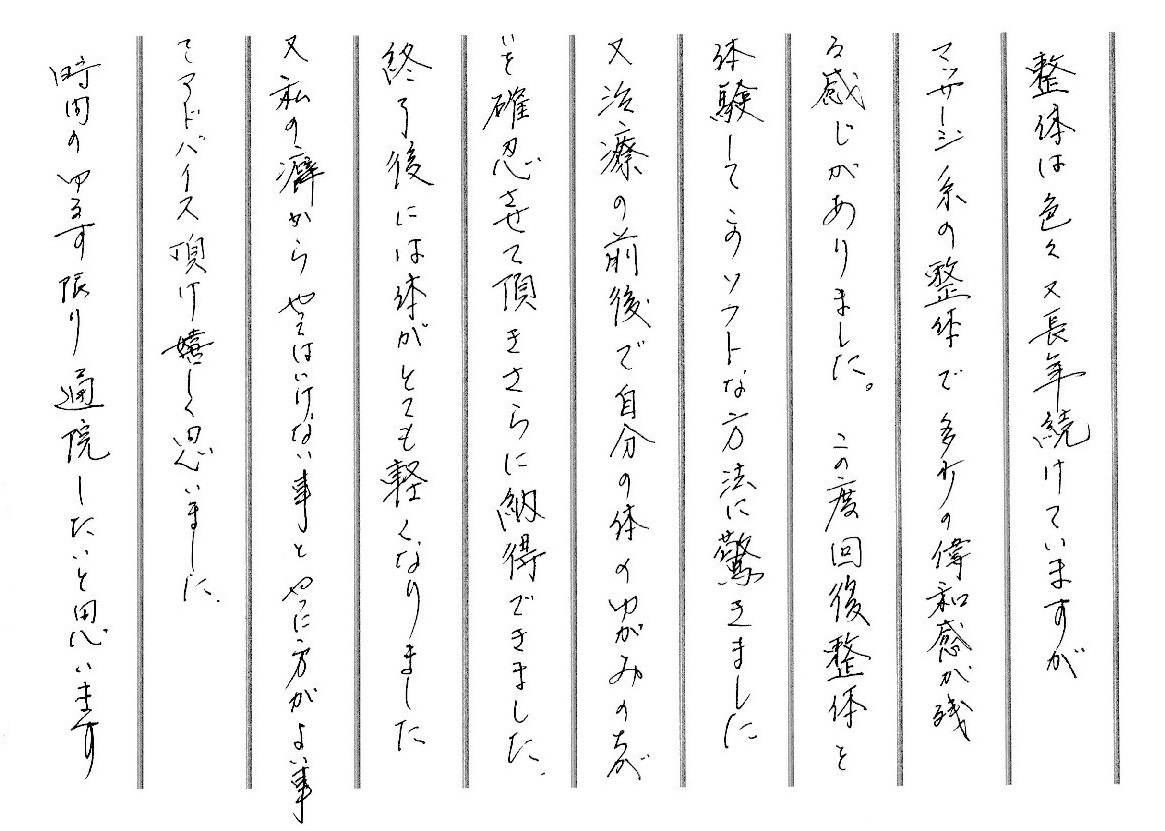 整体は色々又長年続けていますが
マッサージ系の整体で多少の偉和感が残
る感じがありました。 この度回後整体を
体験してこのソフトな方法に驚きました
又治療の前後で自分の体のゆがみのちが
いを確忍させて頂きさらに納得できました.
終了後には体がとても軽くなりました
又私の癖から やってはいけない事と やった方がよい事
でアドバイス頂け嬉しく思いました.
時間のゆるす限り通院したいと思います